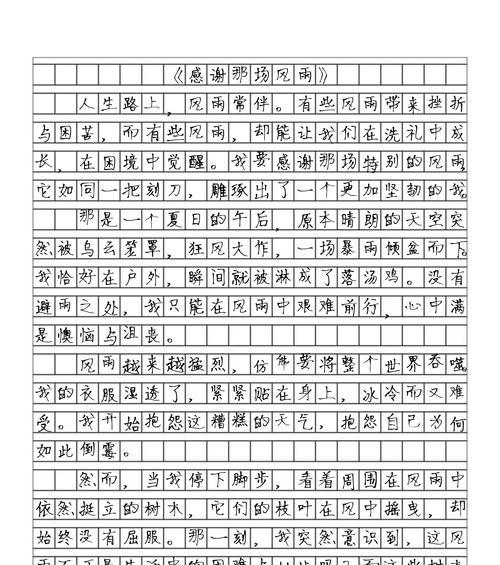 《感谢那场风雨》
人生路上，风雨常伴。有些风雨带来挫折
与困苦，而有些风雨，却能让我们在洗礼中成
长，在困境中觉醒。我要感谢那场特别的风雨，
它如同一把刻刀，雕琢出了一个更加坚韧的我。
那是一个夏日的午后，原本晴朗的天空突
然被乌云笼罩，狂风大作，一场暴雨倾盆而下。
我恰好在户外，瞬间就被淋成了落汤鸡。没有
避雨之处，我只能在风雨中艰难前行，心中满
是懊恼与沮丧。
风雨越来越猛烈，仿佛要将整个世界吞噬。
我的衣服湿透了，紧紧贴在身上，冰冷而又难
受。我开始抱怨这糟糕的天气，抱怨自己为何
如此倒霉。
然而，当我停下脚步，看着周围在风雨中
依然挺立的树木，它们的枝叶在风中摇曳，却
始终没有屈服。那一刻，我突然意识到，这风